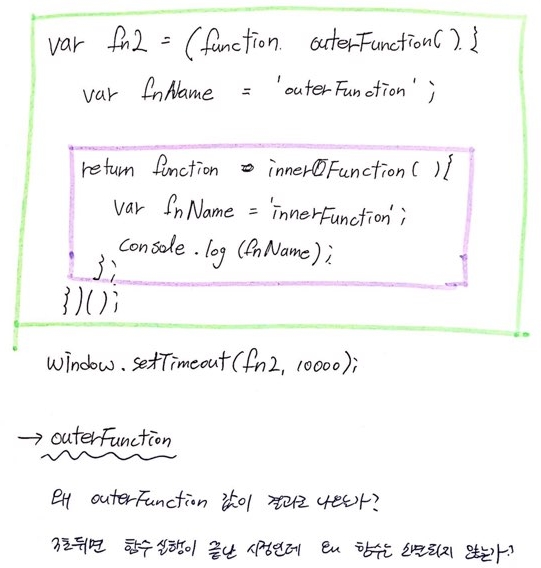 var fn2 = (function outerFunction() {
var fnName = 'outerFunction';
return function innerFunction() {
var fnName = 'innerFunction';
console.log (fnName);
};
})();
window.setTimeout(fn2, 10000);
→ outerFunction
왜 outerFunction 값이 결과로 나오는가?
3초뒤면 함수 실행이 끝난 시점인데 왜 함수는 소멸되지 않는가?